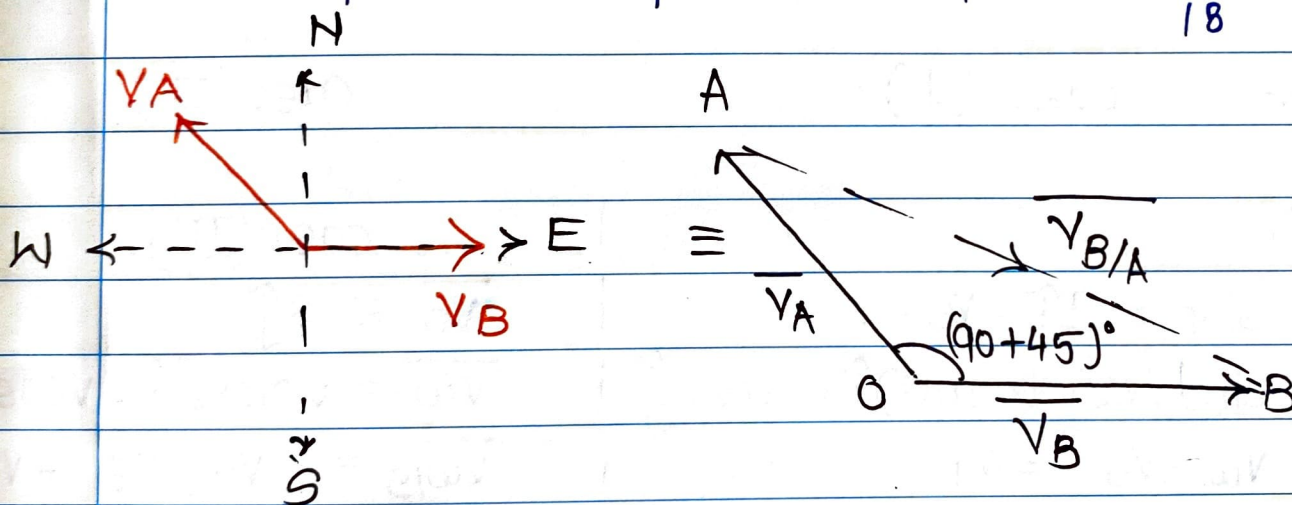 18
N
VA
W
E
VB
S
≡
A
V̅A
V̅B/A
(90+45)°
O
B
V̅B